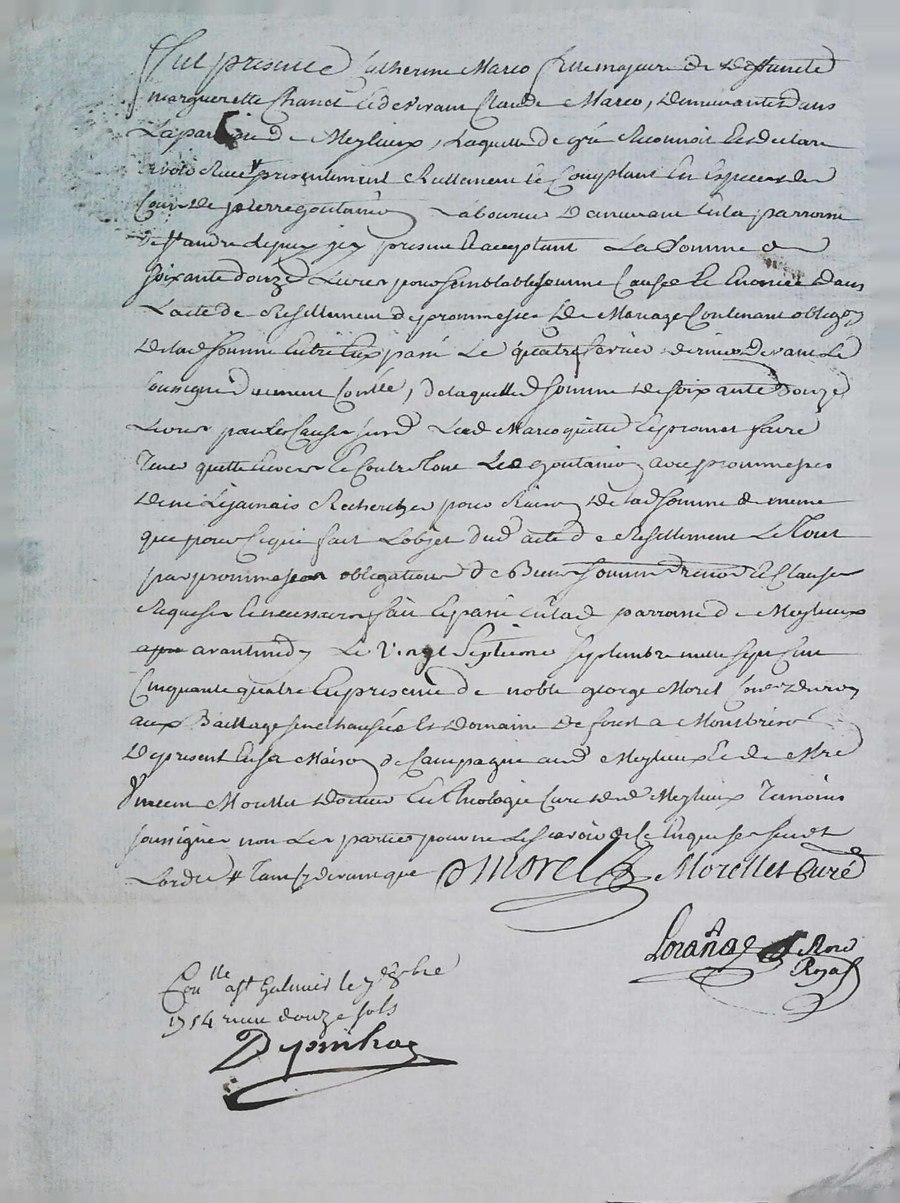 Fut presente Catherine Marco fille majeure de deffuncte
margueritte Chanet et de vivant Claude Marco, demeurantes dans
La paroisse de Meylieux, Laquelle de gré Reconnoit et declare
avoir Receu presentement Reellement et Comptant En especes de
Cours de pierre goutanier Laboureur demeurant En la parroisse
de st andre Le puy icy present et acceptant La somme de
soixante douze Livres pour semblable somme Causée et Enoncée dans
L'acte de Resiliement de prommesses de Mariage Contenant obligaon
de lad somme Entre Eux passé Le quatre fevrier dernier devant Le
soussigné duement Conllé, de laquelle d somme de soixante douze
Livres pour les Causes susd Lad Marco quitte et promet faire
tenir quitte Envers et Contre tous Led goutanier avec prommesses
de ne Le jamais Rechercher pour Raison de lad somme de meme
que pour ce qui fait L'objet dud acte de Resiliement Le tout
par prommesses obligations de Biens soumm renon et Clauses
Requises et necessaires fait et passé En lad parroisse de Meylieux
avant midy Le vingt septieme septembre mille sept Cens
Cinquante quatre En presence de noble george Morel Coner du roy
aux Baillage senechaussée et domaine de forest a Montbrison
de present En sa Maison de Campagne aud Meylieux et de Mre
vincent Morellet docteur En theologie Curé dud Meylieux temoins
soussignes non Les parties pour ne Le scavoir de ce Enquises suivt
L'ordce
Morel Morellet Curé
Loranda Nore
Royal
Conlle a st Galmier le 7e 8bre
1754 recu douze sols
Depinhac